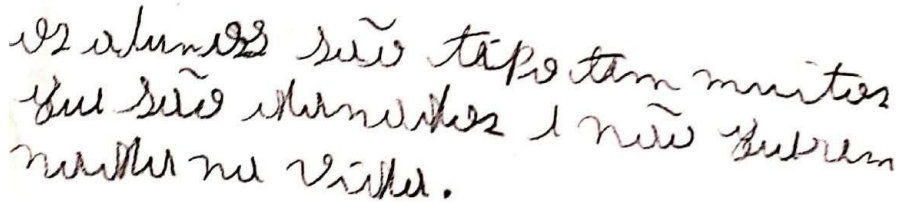 os alunos são tipo tem muitos
que são danados e não querem
nada na vida.